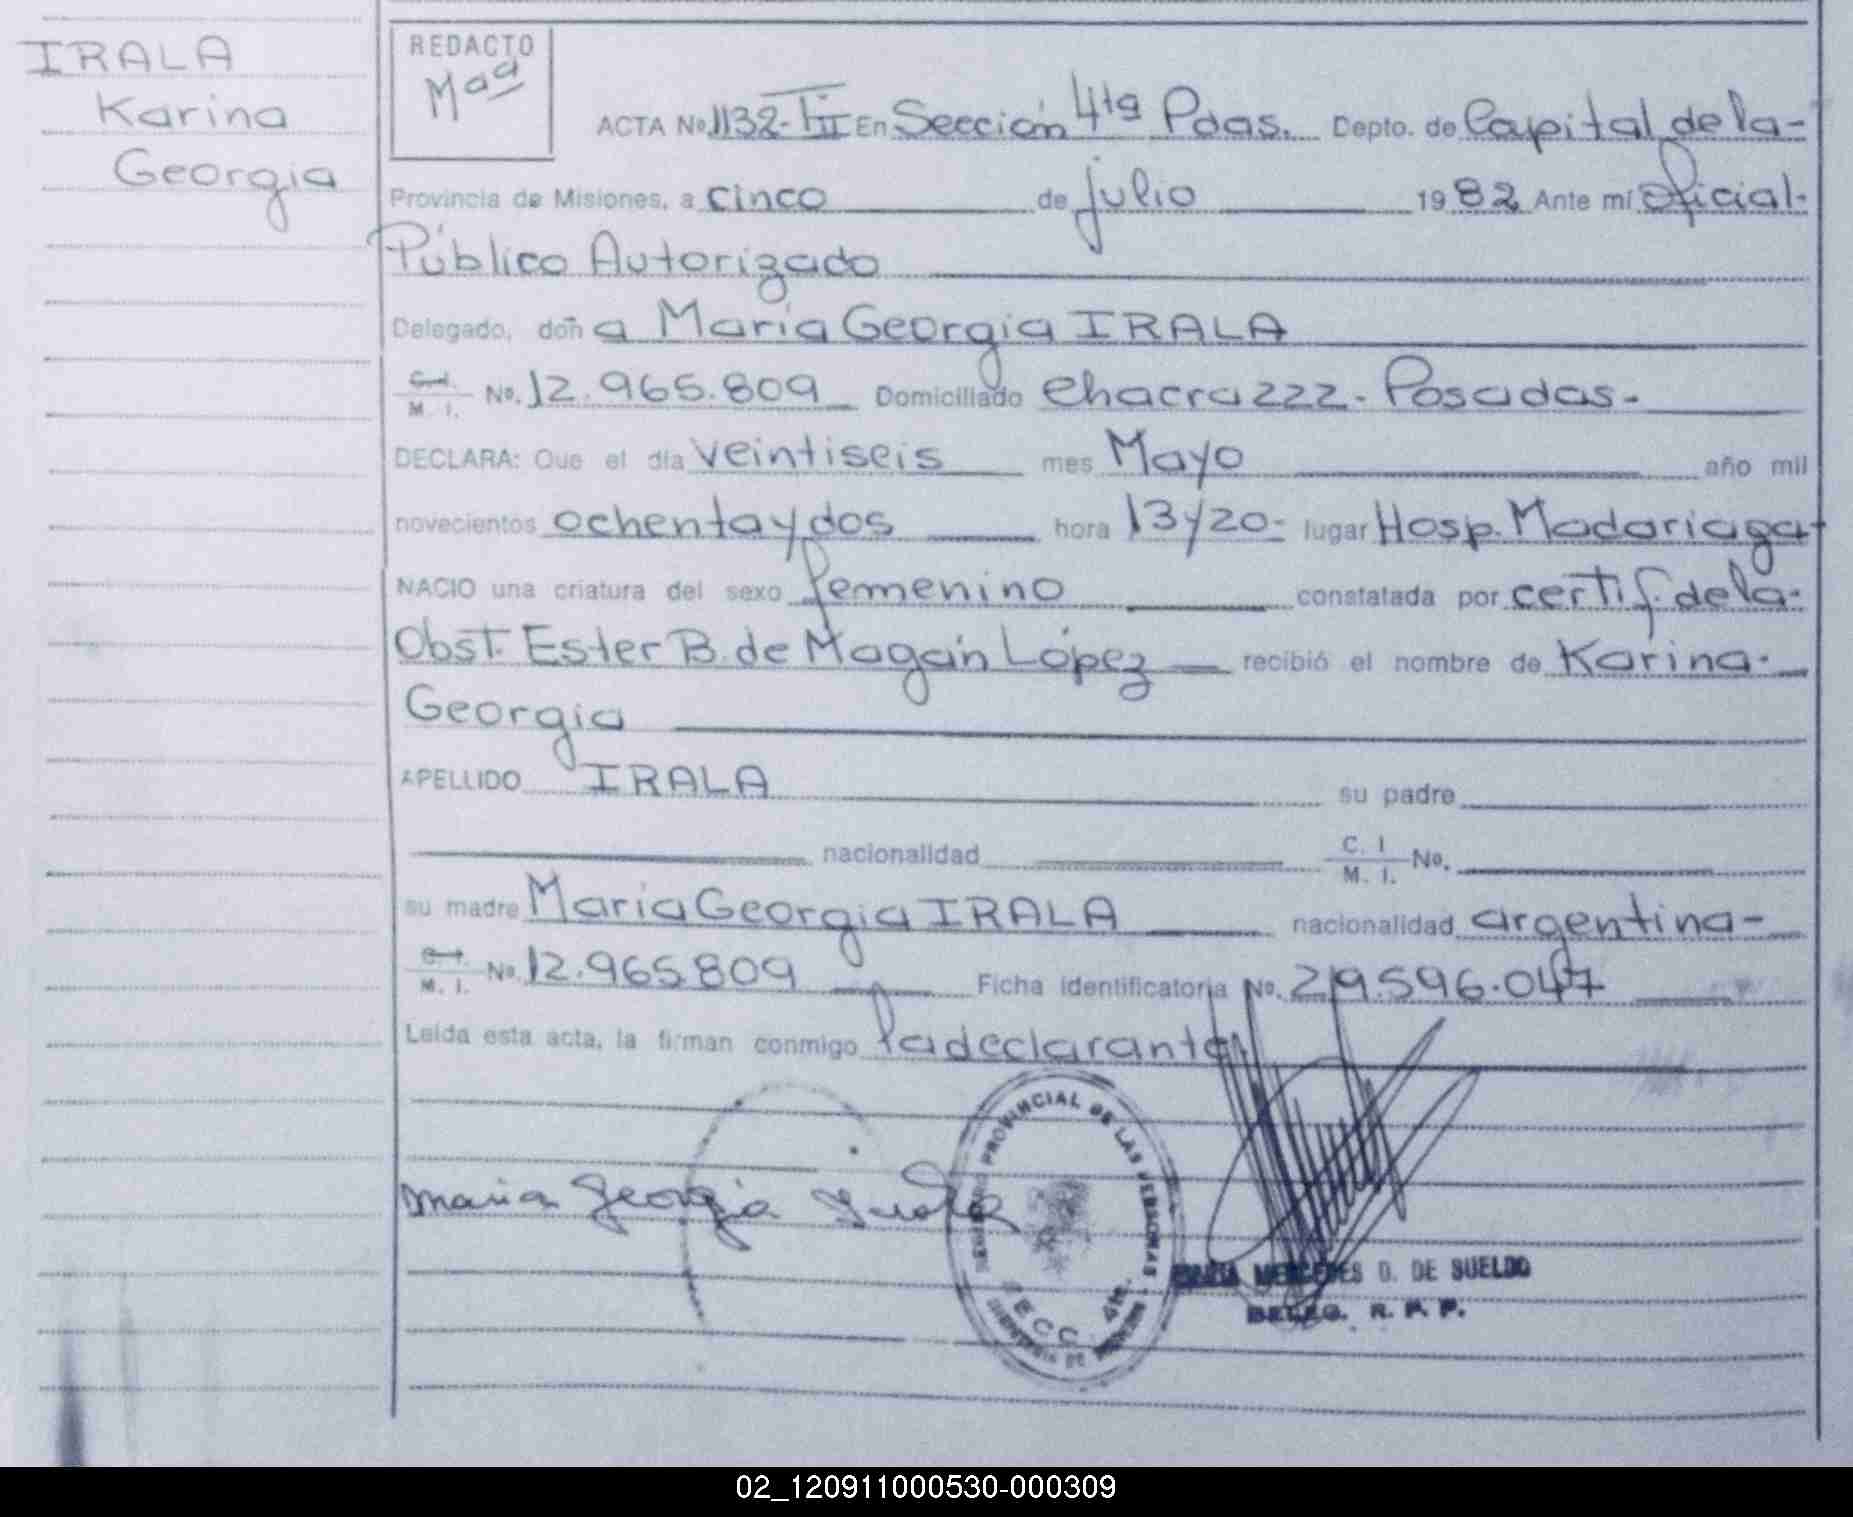 IRALA
Karina
Georgia
REDACTO
Mªª
ACTA Nº 1132-TII En Sección 4ta Pdas. Depto. de Capital de la-
Provincia de Misiones, a cinco de julio 1982 Ante mí Oficial-
Público Autorizado
Delegado, doña María Georgia IRALA
C.I. M. I. Nº. 12.965.809 Domiciliado Chacra 222- Posadas-
DECLARA: Que el día veintiseis mes Mayo año mil
novecientos ochenta y dos hora 13y20- lugar Hosp. Madariaga
NACIO una criatura del sexo femenino constatada por certif. de la-
Obst. Ester B. de Magán López recibió el nombre de Karina-
Georgia
APELLIDO IRALA su padre
nacionalidad C. I. M. I. Nº.
su madre María Georgia IRALA nacionalidad argentina-
C.I. M. I. Nº. 12.965.809 Ficha identificatoria Nº. 29.596.047
Leída esta acta, la firman conmigo la declarante
Maria Georgia Irala
REGISTRO PROVINCIAL DE LAS PERSONAS
SECC. 4ta.
MARIA MERCEDES D. DE SUELDO
DELEG. R. P. P.
02_120911000530-000309